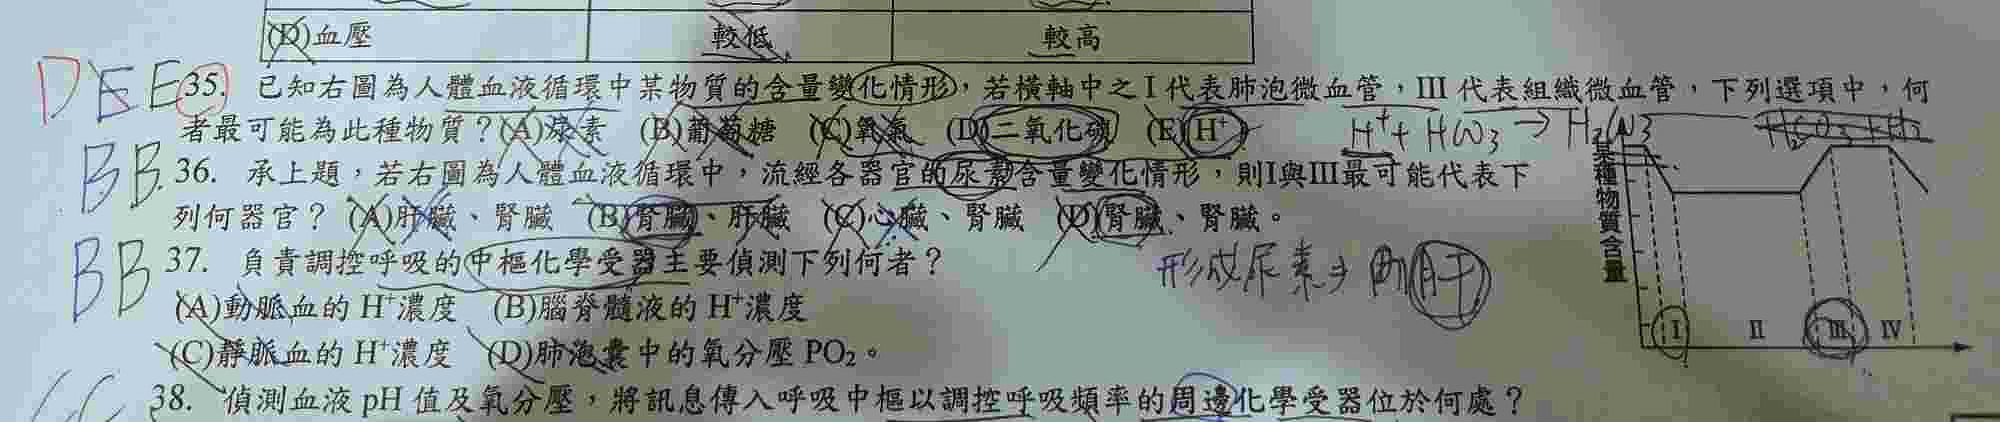 (D)血壓 較低 較高
DEE 35. 已知右圖為人體血液循環中某物質的含量變化情形，若橫軸中之 I 代表肺泡微血管，III 代表組織微血管，下列選項中，何
者最可能為此種物質？(A)尿素 (B)葡萄糖 (C)氧氣 (D)二氧化碳 (E)H⁺
BB 36. 承上題，若右圖為人體血液循環中，流經各器官的尿素含量變化情形，則I與III最可能代表下
列何器官？ (A)肝臟、腎臟 (B)腎臟、肝臟 (C)心臟、腎臟 (D)腎臟、腎臟。
BB 37. 負責調控呼吸的中樞化學受器主要偵測下列何者？
形成尿素→ 肝
(A)動脈血的 H⁺濃度 (B)腦脊髓液的 H⁺濃度
(C)靜脈血的 H⁺濃度 (D)肺泡囊中的氧分壓 PO₂。
38. 偵測血液 pH 值及氧分壓，將訊息傳入呼吸中樞以調控呼吸頻率的周邊化學受器位於何處？
某種物質含量
I II III IV